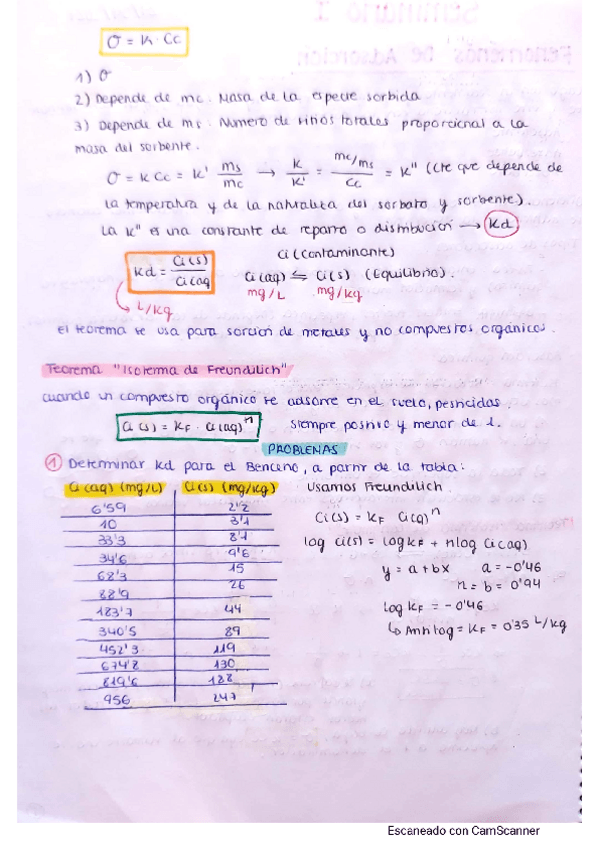 σ = K · Cc
1) σ
2) Depende de mc. Masa de la especie sorbida
3) Depende de ms. Número de sitios totales proporcional a la
masa del sorbente.
σ = K Cc = K' ms/mc → K/K' = mc/ms / Cc = K'' (cte que depende de
la temperatura y de la naturaleza del sorbato y sorbente).
La K'' es una constante de reparto o distribución → Kd
Kd = Ci(s) / Ci(aq)
Ci (contaminante)
Ci(aq) ⇌ Ci(s) (Equilibrio).
mg/L mg/Kg
↳ L/Kg
El teorema se usa para sorción de metales y no compuestos orgánicos.
Teorema "Isoterma de Freundilich"
Cuando un compuesto orgánico se adsorve en el suelo, pesticidas.
Ci(s) = KF · Ci(aq)^n siempre positivo y menor de 1.
PROBLEMAS
① Determinar Kd para el Benceno, a partir de la tabla:
Ci(aq) (mg/L) Ci(s) (mg/Kg)
6'59 2'2
10 3'1
33'3 8'1
34'6 9'6
68'3 15
88'9 26
183'7 44
340'5 89
452'3 119
674'8 130
819'6 188
956 247
Usamos Freundilich
Ci(s) = KF Ci(aq)^n
log Ci(s) = log KF + n log Ci(aq)
y = a + bx a = -0'46
n = b = 0'94
log KF = -0'46
↳ Antilog = KF = 0'35 L/Kg
Escaneado con CamScanner